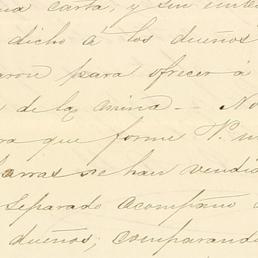 carta, y sin
dicho á los dueños
para ofrecer á
de la mina. - No
que forme V. un
barras se han vendid
separado acompaño
dueños; comparand